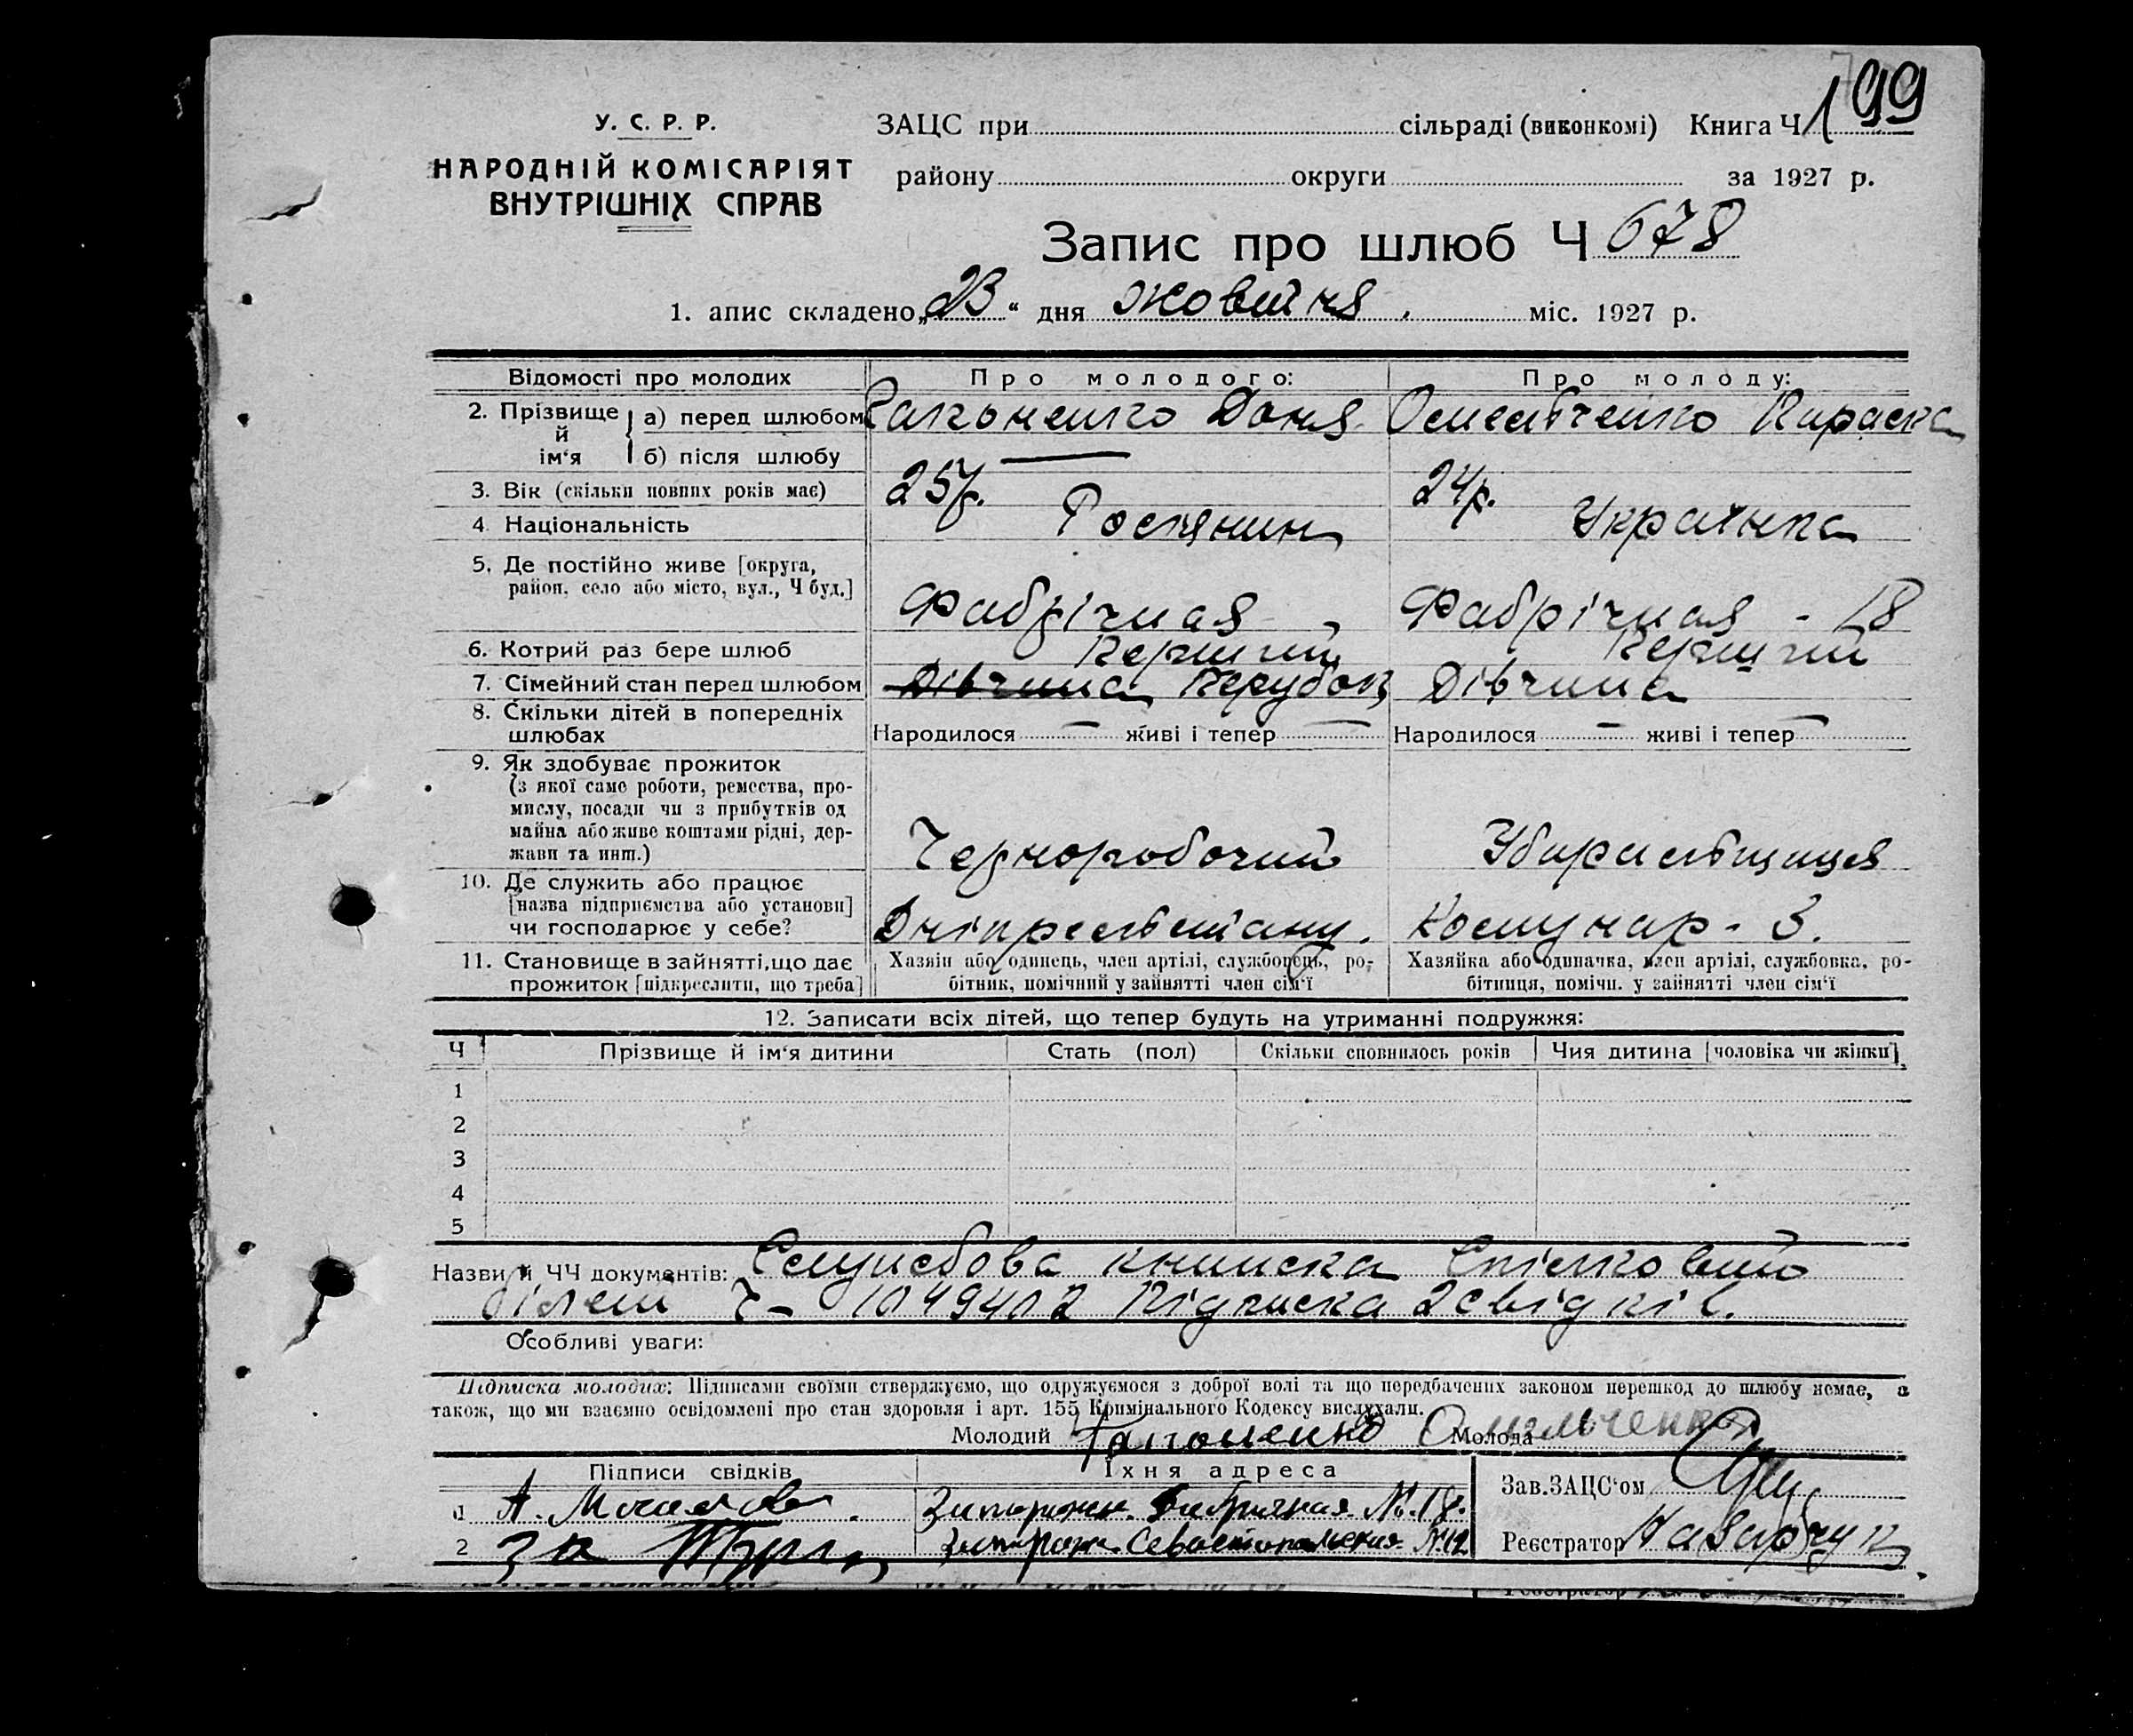 199
У. С. Р. Р.
НАРОДНІЙ КОМІСАРІЯТ
ВНУТРІШНІХ СПРАВ
ЗАЦС при сільраді (виконкомі) Книга Ч
району округи за 1927 р.
Запис про шлюб Ч 678
1. апис складено „23“ дня жовтня міс. 1927 р.
Відомості про молодих
Про молодого:
Про молоду:
2. Прізвище й ім‘я
а) перед шлюбом
б) після шлюбу
3. Вік (скільки повних років має)
25р.
24р.
4. Національність
Росіянин
Українка
5. Де постійно живе [округа,
район, село або місто, вул., Ч буд.]
Фабрічная
Фабрічная - 18
6. Котрий раз бере шлюб
Перший
Перший
7. Сімейний стан перед шлюбом
Дівчина Парубок
Дівчина
8. Скільки дітей в попередніх
шлюбах
Народилося — живі і тепер —
Народилося — живі і тепер —
9. Як здобуває прожиток
(з якої саме роботи, ремества, про-
мислу, посади чи з прибутків од
майна або живе коштами рідні, дер-
жави та инш.)
Чернорабочий
10. Де служить або працює
[назва підприємства або установи]
чи господарює у себе?
Комунар - 3.
11. Становище в зайнятті, що дає
прожиток [підкреслити, що треба]
Хазяїн або одинець, член артілі, службовець, ро-
бітник, помічний у зайнятті член сім‘ї
Хазяйка або одиначка, член артілі, службовка, ро-
бітниця, помічн. у зайнятті член сім‘ї
12. Записати всіх дітей, що тепер будуть на утриманні подружжя:
Ч
Прізвище й ім‘я дитини
Стать (пол)
Скільки сповнилось років
Чия дитина [чоловіка чи жінки]
1
2
3
4
5
Назви й ЧЧ документів: Службова книжка Спілковий
білет Ч- Підписка 2 свідків.
Особливі уваги:
Підписка молодих: Підписами своїми стверджуємо, що одружуємося з доброї волі та що передбачених законом перешкод до шлюбу немає, а
також, що ми взаємно освідомлені про стан здоров‘я і арт. 155 Кримінального Кодексу вислухали.
Молодий
Молода
Підписи свідків
Їхня адреса
1
Фабричная №. 18.
2 за
Севастопольская №12
Зав. ЗАЦС‘ом
Реєстратор